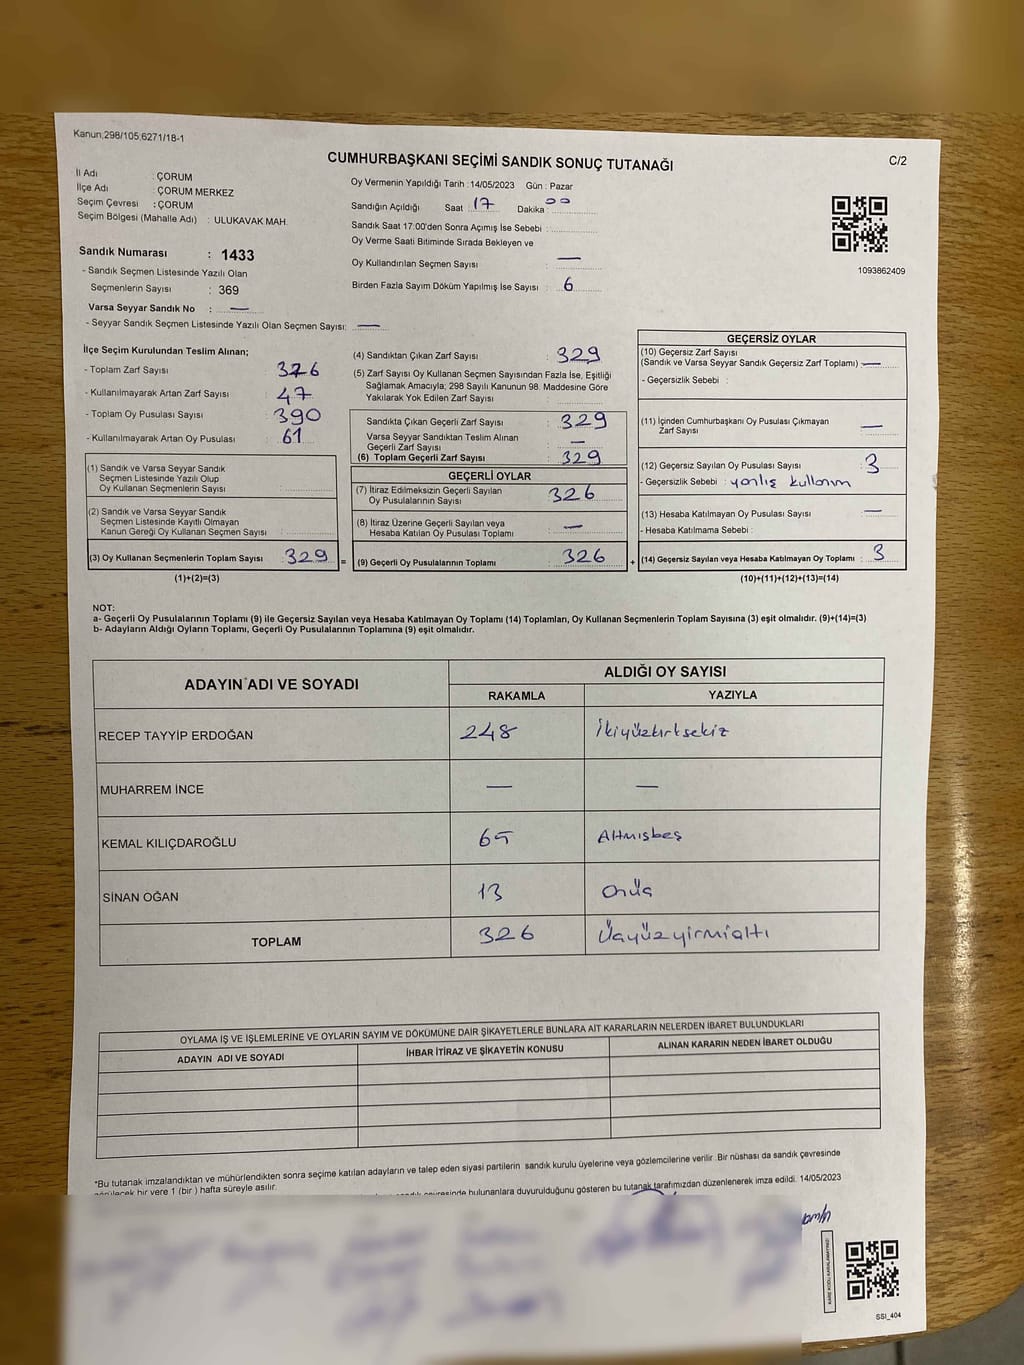 Kanun:298/105;6271/18-1
CUMHURBAŞKANI SEÇİMİ SANDIK SONUÇ TUTANAĞI
C/2
İl Adı : ÇORUM
İlçe Adı : ÇORUM MERKEZ
Seçim Çevresi : ÇORUM
Seçim Bölgesi (Mahalle Adı) : ULUKAVAK MAH.
Sandık Numarası : 1433
- Sandık Seçmen Listesinde Yazılı Olan
Seçmenlerin Sayısı : 369
Varsa Seyyar Sandık No : —
- Seyyar Sandık Seçmen Listesinde Yazılı Olan Seçmen Sayısı: —
Oy Vermenin Yapıldığı Tarih : 14/05/2023 Gün : Pazar
Sandığın Açıldığı Saat 17 Dakika : 00
Sandık Saat 17:00'den Sonra Açımış İse Sebebi :
Oy Verme Saati Bitiminde Sırada Bekleyen ve
Oy Kullandırılan Seçmen Sayısı : —
Birden Fazla Sayım Döküm Yapılmış İse Sayısı : 6
1093862409
İlçe Seçim Kurulundan Teslim Alınan;
- Toplam Zarf Sayısı : 376
- Kullanılmayarak Artan Zarf Sayısı : 47
- Toplam Oy Pusulası Sayısı : 390
- Kullanılmayarak Artan Oy Pusulası : 61
(1) Sandık ve Varsa Seyyar Sandık
Seçmen Listesinde Yazılı Olup
Oy Kullanan Seçmenlerin Sayısı :
(2) Sandık ve Varsa Seyyar Sandık
Seçmen Listesinde Kayıtlı Olmayan
Kanun Gereği Oy Kullanan Seçmen Sayısı :
(3) Oy Kullanan Seçmenlerin Toplam Sayısı : 329 =
(1)+(2)=(3)
(4) Sandıktan Çıkan Zarf Sayısı : 329
(5) Zarf Sayısı Oy Kullanan Seçmen Sayısından Fazla İse, Eşitliği
Sağlamak Amacıyla; 298 Sayılı Kanunun 98. Maddesine Göre
Yakılarak Yok Edilen Zarf Sayısı :
Sandıkta Çıkan Geçerli Zarf Sayısı : 329
Varsa Seyyar Sandıktan Teslim Alınan
Geçerli Zarf Sayısı : —
(6) Toplam Geçerli Zarf Sayısı : 329
GEÇERLİ OYLAR
(7) İtiraz Edilmeksizin Geçerli Sayılan
Oy Pusulalarının Sayısı : 326
(8) İtiraz Üzerine Geçerli Sayılan veya
Hesaba Katılan Oy Pusulaları Toplamı : —
(9) Geçerli Oy Pusulalarının Toplamı : 326 +
GEÇERSİZ OYLAR
(10) Geçersiz Zarf Sayısı
(Sandık ve Varsa Seyyar Sandık Geçersiz Zarf Toplamı) : —
- Geçersizlik Sebebi :
(11) İçinden Cumhurbaşkanı Oy Pusulası Çıkmayan
Zarf Sayısı : —
(12) Geçersiz Sayılan Oy Pusulası Sayısı : 3
- Geçersizlik Sebebi : yanlış kullanım
(13) Hesaba Katılmayan Oy Pusulası Sayısı : —
- Hesaba Katılmama Sebebi :
(14) Geçersiz Sayılan veya Hesaba Katılmayan Oy Toplamı : 3
(10)+(11)+(12)+(13)=(14)
NOT:
a- Geçerli Oy Pusulalarının Toplamı (9) ile Geçersiz Sayılan veya Hesaba Katılmayan Oy Toplamı (14) Toplamları, Oy Kullanan Seçmenlerin Toplam Sayısına (3) eşit olmalıdır. (9)+(14)=(3)
b- Adayların Aldığı Oyların Toplamı, Geçerli Oy Pusulalarının Toplamına (9) eşit olmalıdır.
ADAYIN ADI VE SOYADI
ALDIĞI OY SAYISI
RAKAMLA YAZIYLA
RECEP TAYYİP ERDOĞAN 248 İkiyüzkırksekiz
MUHARREM İNCE — —
KEMAL KILIÇDAROĞLU 65 Altmışbeş
SİNAN OĞAN 13 Onüç
TOPLAM 326 Üçyüzyirmialtı
OYLAMA İŞ VE İŞLEMLERİNE VE OYLARIN SAYIM VE DÖKÜMÜNE DAİR ŞİKAYETLERLE BUNLARA AİT KARARLARIN NELERDEN İBARET BULUNDUKLARI
ADAYIN ADI VE SOYADI İHBAR İTİRAZ VE ŞİKAYETİN KONUSU ALINAN KARARIN NEDEN İBARET OLDUĞU
*Bu tutanak imzalandıktan ve mühürlendikten sonra seçime katılan adayların ve talep eden siyasi partilerin sandık kurulu üyelerine veya gözlemcilerine verilir .Bir nüshası da sandık çevresinde
görülecek bir yere 1 (bir ) hafta süreyle asılır.
bulunanlara duyurulduğunu gösteren bu tutanak tarafımızdan düzenlenerek imza edildi. 14/05/2023
SSI_404